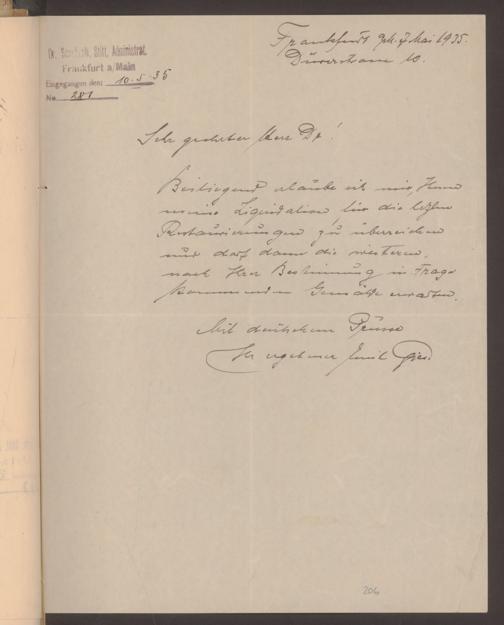 Dr. Senckenb. Stift. Administrat.
Frankfurt a/Main
Eingegangen den: 10.5.35
No. 281
Frankfurt 7 Mai 1935.
Dürerstrasse 10.
Sehr geehrter Herr Dr!
Beiliegend erlaube ich mir, Ihnen
meine Liquidation, für die letzten
Restaurierungen zu überreichen
und darf dann die weiteren,
nach Ihrer Bestimmung in Frage
kommenden Gemälde erwarten.
Mit deutschem Grusse
Ihr ergebener Emil
204